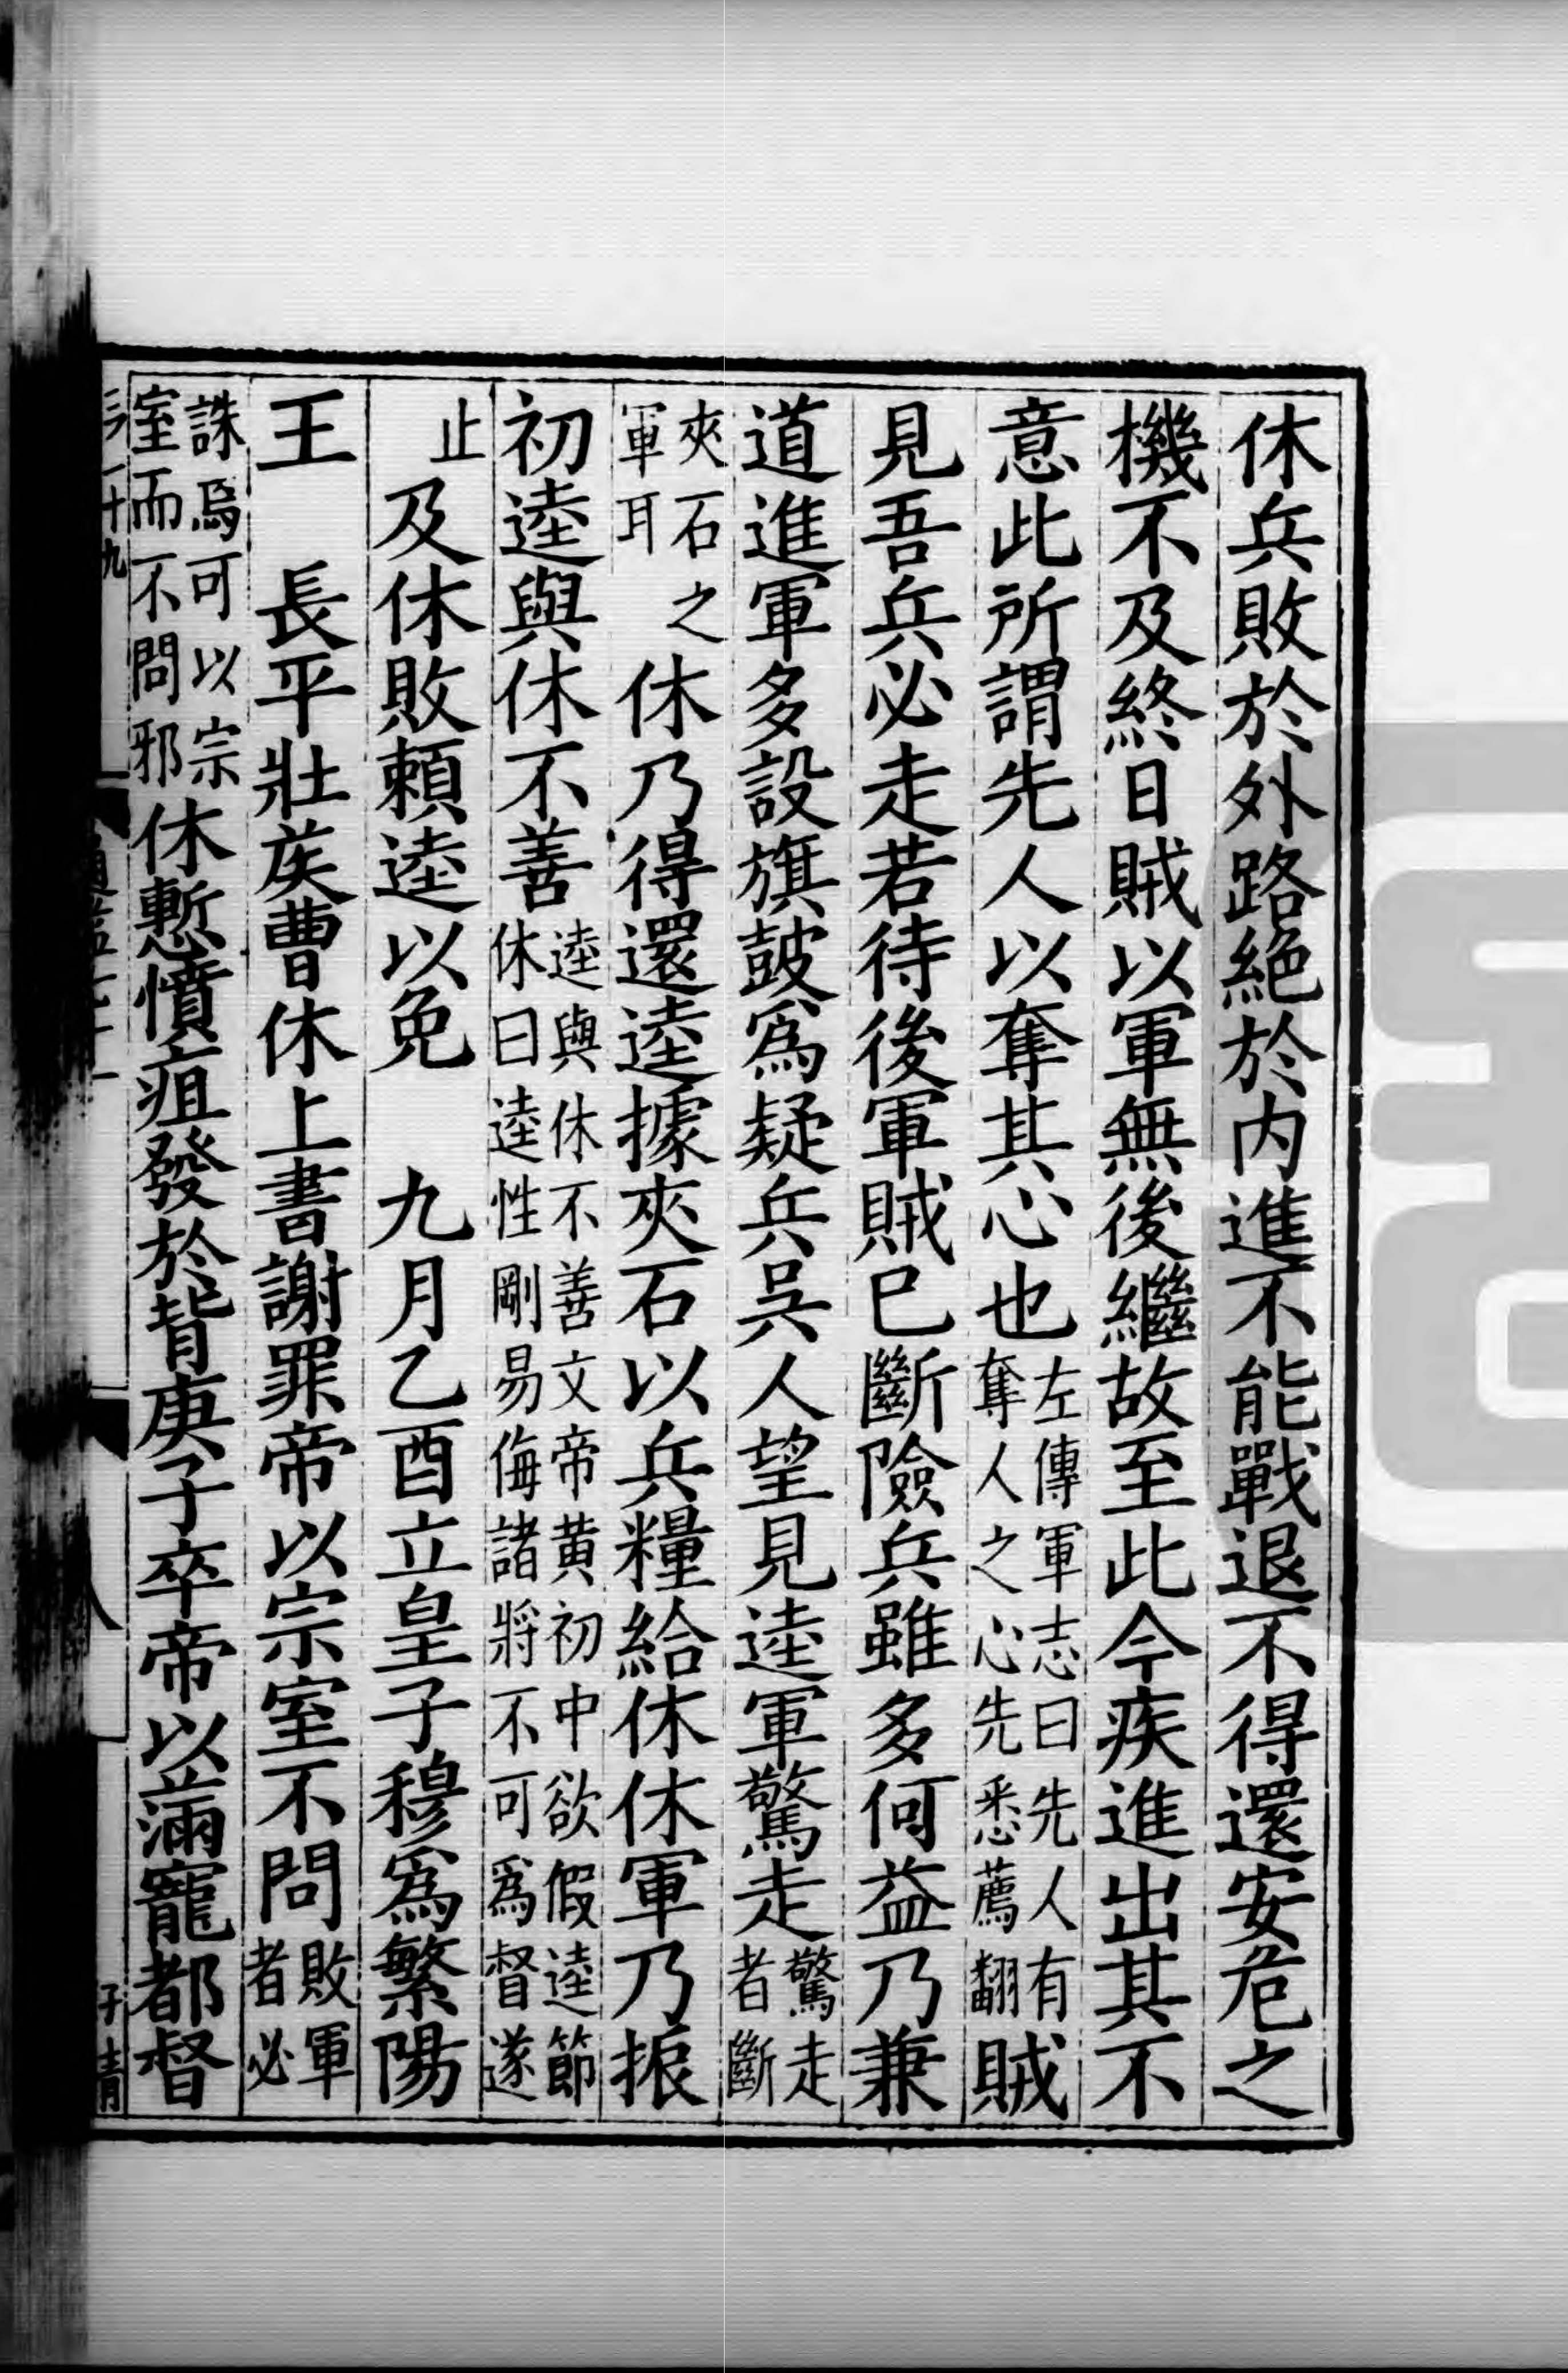 休兵敗於外路絶於内進不能戰退不得還安危之
機不及終日賊以軍無後繼故至此今疾進出其不
意此所謂先人以奪其心也左傳軍志曰先人有奪人之心先悉薦翻賊
見吾兵必走若待後軍賊已斷險兵雖多何益乃兼
道進軍多設旗鼓爲疑兵吳人望見逵軍驚走驚走者斷
夾石之軍耳休乃得還逵據夾石以兵糧給休休軍乃振
初逵與休不善逵與休不善文帝黄初中欲假逵節休曰逵性剛易侮諸將不可爲督遂
止及休敗賴逵以免 九月乙酉立皇子穆爲繁陽
王 長平壯矦曹休上書謝罪帝以宗室不問敗軍者必
誅烏可以宗室而不問邪休慙憤疽發於背庚子卒帝以滿寵都督